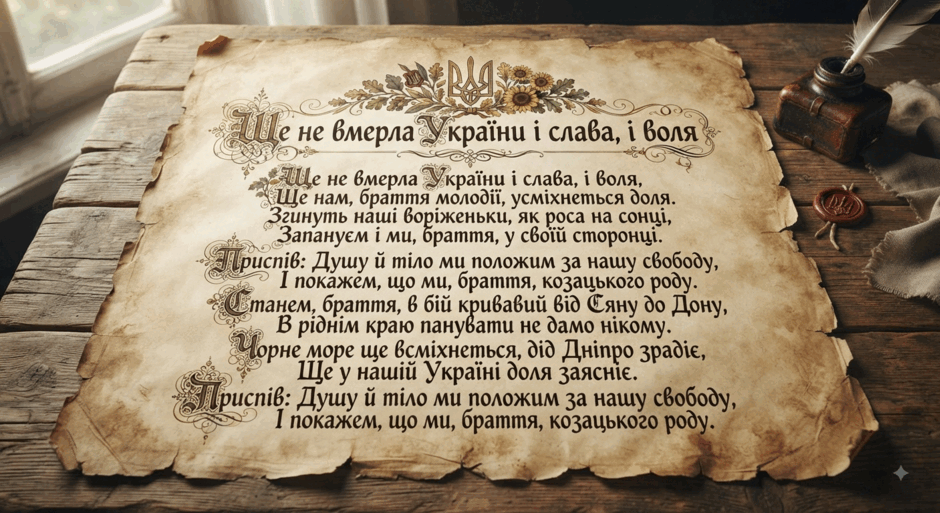 Ще не вмерла України і слава, і воля
Ще не вмерла України і слава, і воля,
Ще нам, браття молодії, усміхнеться доля.
Згинуть наші воріженьки, як роса на сонці,
Запануєм і ми, браття, у своїй сторонці.
Приспів: Душу й тіло ми положим за нашу свободу,
І покажем, що ми, браття, козацького роду.
Станем, браття, в бій кривавий від Сяну до Дону,
В ріднім краю панувати не дамо нікому.
Чорне море ще всміхнеться, дід Дніпро зрадіє,
Ще у нашій Україні доля заясніє.
Приспів: Душу й тіло ми положим за нашу свободу,
І покажем, що ми, браття, козацького роду.